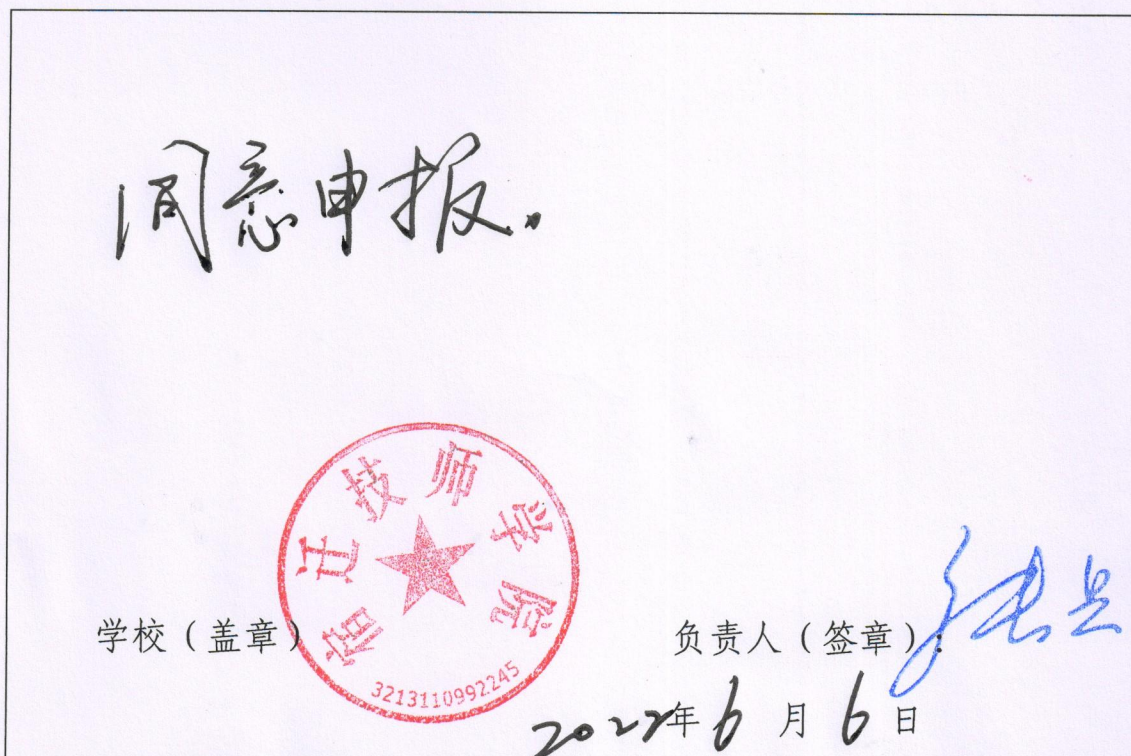 同意申报。
宿迁技师学院
3213110992245
学校（盖章）
负责人（签章）：
2022年6月6日